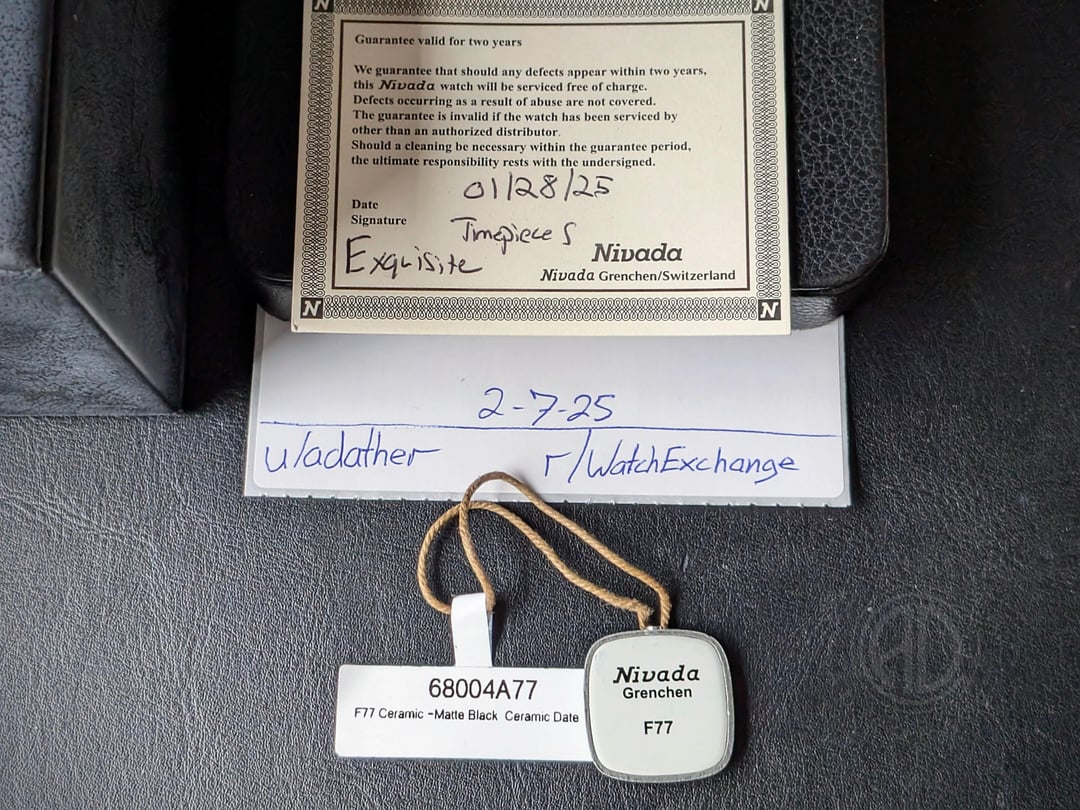 N N
Guarantee valid for two years
We guarantee that should any defects appear within two years,
this Nivada watch will be serviced free of charge.
Defects occurring as a result of abuse are not covered.
The guarantee is invalid if the watch has been serviced by
other than an authorized distributor.
Should a cleaning be necessary within the guarantee period,
the ultimate responsibility rests with the undersigned.
01/28/25
Date
Signature
Timepieces
Exquisite
Nivada
Nivada Grenchen/Switzerland
N N
2-7-25
u/adather r/WatchExchange
68004A77
F77 Ceramic -Matte Black Ceramic Date
Nivada
Grenchen
F77